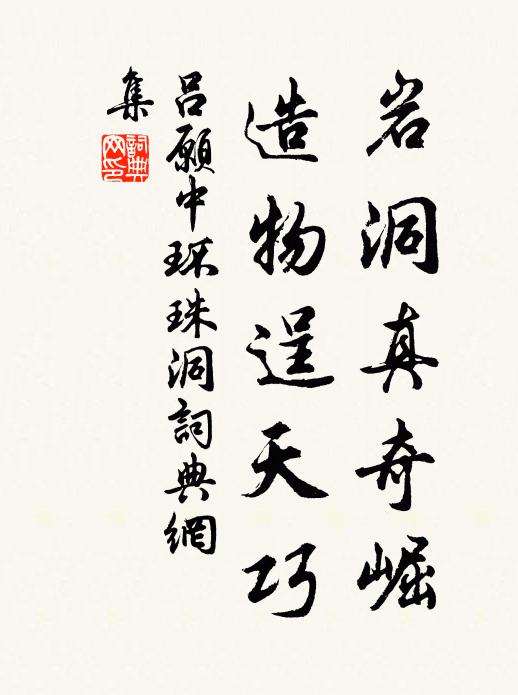 岩洞真奇崛
造物逞天巧
吕願中环珠洞詞典網
集
詞典网印